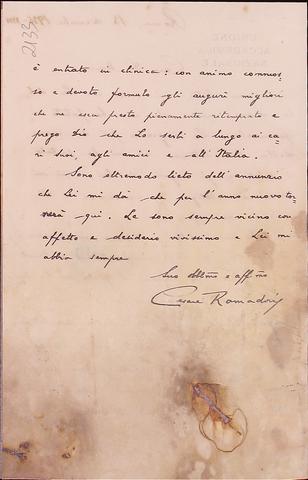 2133
è entrato in clinica: con animo commos-
so e devoto formulo gli auguri migliori
che ne esca presto pienamente ritemprato e
prego Dio che Lo serbi a lungo ai ca-
ri Suoi, agli amici e all'Italia.
Sono oltremodo lieto dell'annunzio
che Lei mi dà che per l'anno nuovo tor-
nerà qui. Le sono sempre vicino con
affetto e desiderio vivissimo e Lei mi
abbia sempre
Suo obbl̃mo e aff̃mo
Cesare